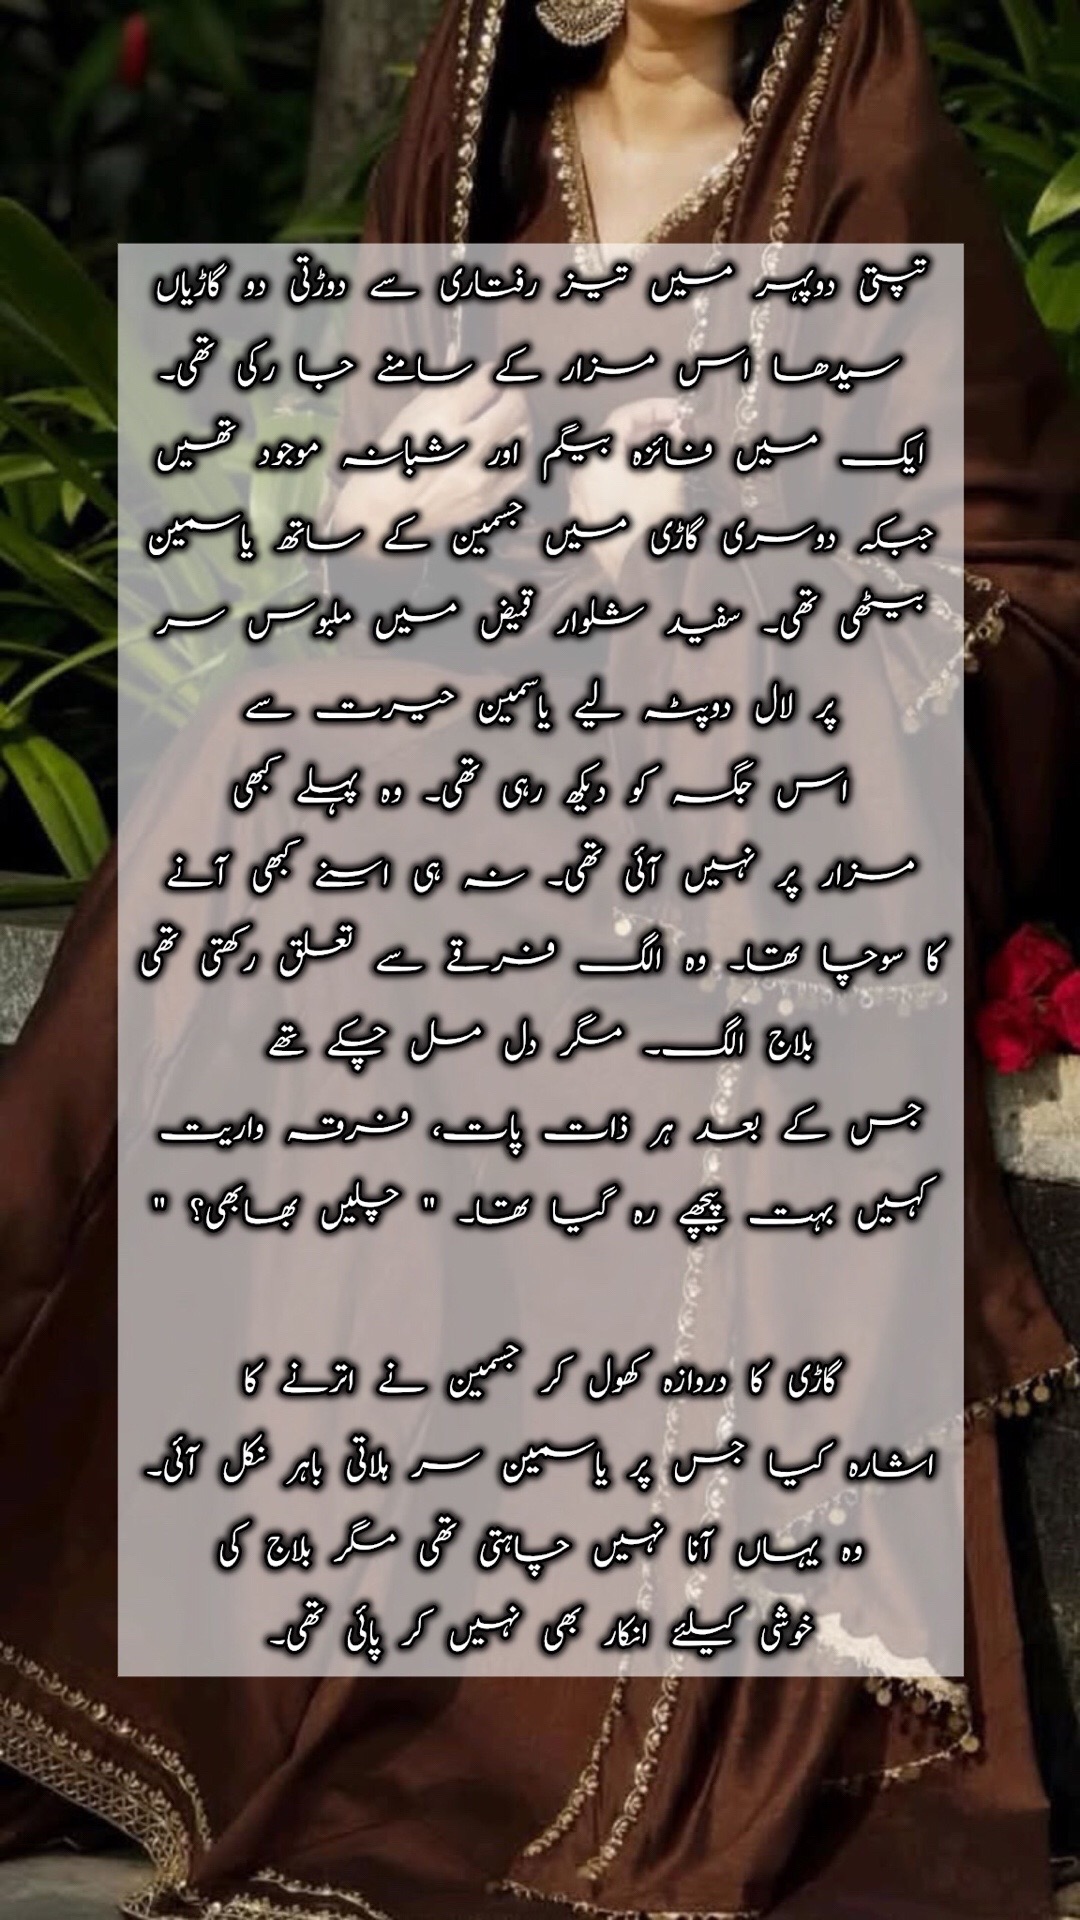 تپتی دوپہر میں تیز رفتاری سے دوڑتی دو گاڑیاں
سیدھا اس مزار کے سامنے جا رکی تھی۔
ایک میں فائزہ بیگم اور شبانہ موجود تھیں
جبکہ دوسری گاڑی میں جسمین کے ساتھ یاسمین
بیٹھی تھی۔ سفید شلوار قمیض میں ملبوس سر
پر لال دوپٹہ لیے یاسمین حیرت سے
اس جگہ کو دیکھ رہی تھی۔ وہ پہلے کبھی
مزار پر نہیں آئی تھی۔ نہ ہی اسنے کبھی آنے
کا سوچا تھا۔ وہ الگ فرقے سے تعلق رکھتی تھی
بلاج الگ۔ مگر دل مل چکے تھے
جس کے بعد ہر ذات پات، فرقہ واریت
کہیں بہت پیچھے رہ گیا تھا۔ " چلیں بھابھی؟ "
گاڑی کا دروازہ کھول کر جسمین نے اترنے کا
اشارہ کیا جس پر یاسمین سر ہلاتی باہر نکل آئی۔
وہ یہاں آنا نہیں چاہتی تھی مگر بلاج کی
خوشی کیلئے انکار بھی نہیں کر پائی تھی۔